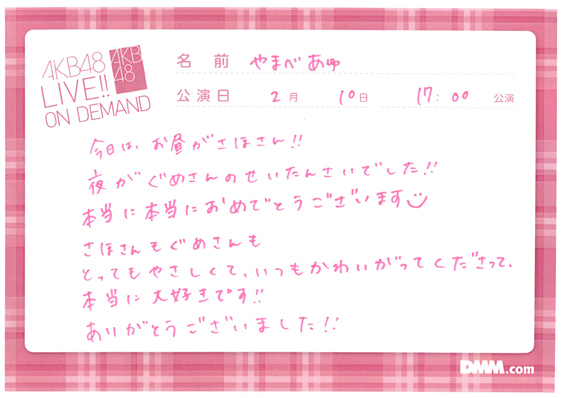 AKB48
LIVE!!
ON DEMAND
AKB
48
名前 やまべあゆ
公演日 2月 10日 17:00 公演
今日は、お昼がさほさん!!
夜がぐめさんのせいたんさいでした!!
本当に本当におめでとうございます
さほさんもぐめさんも
とってもやさしくて、いつもかわいがってくださって、
本当に大好きです!!
ありがとうございました!!
DMM.com